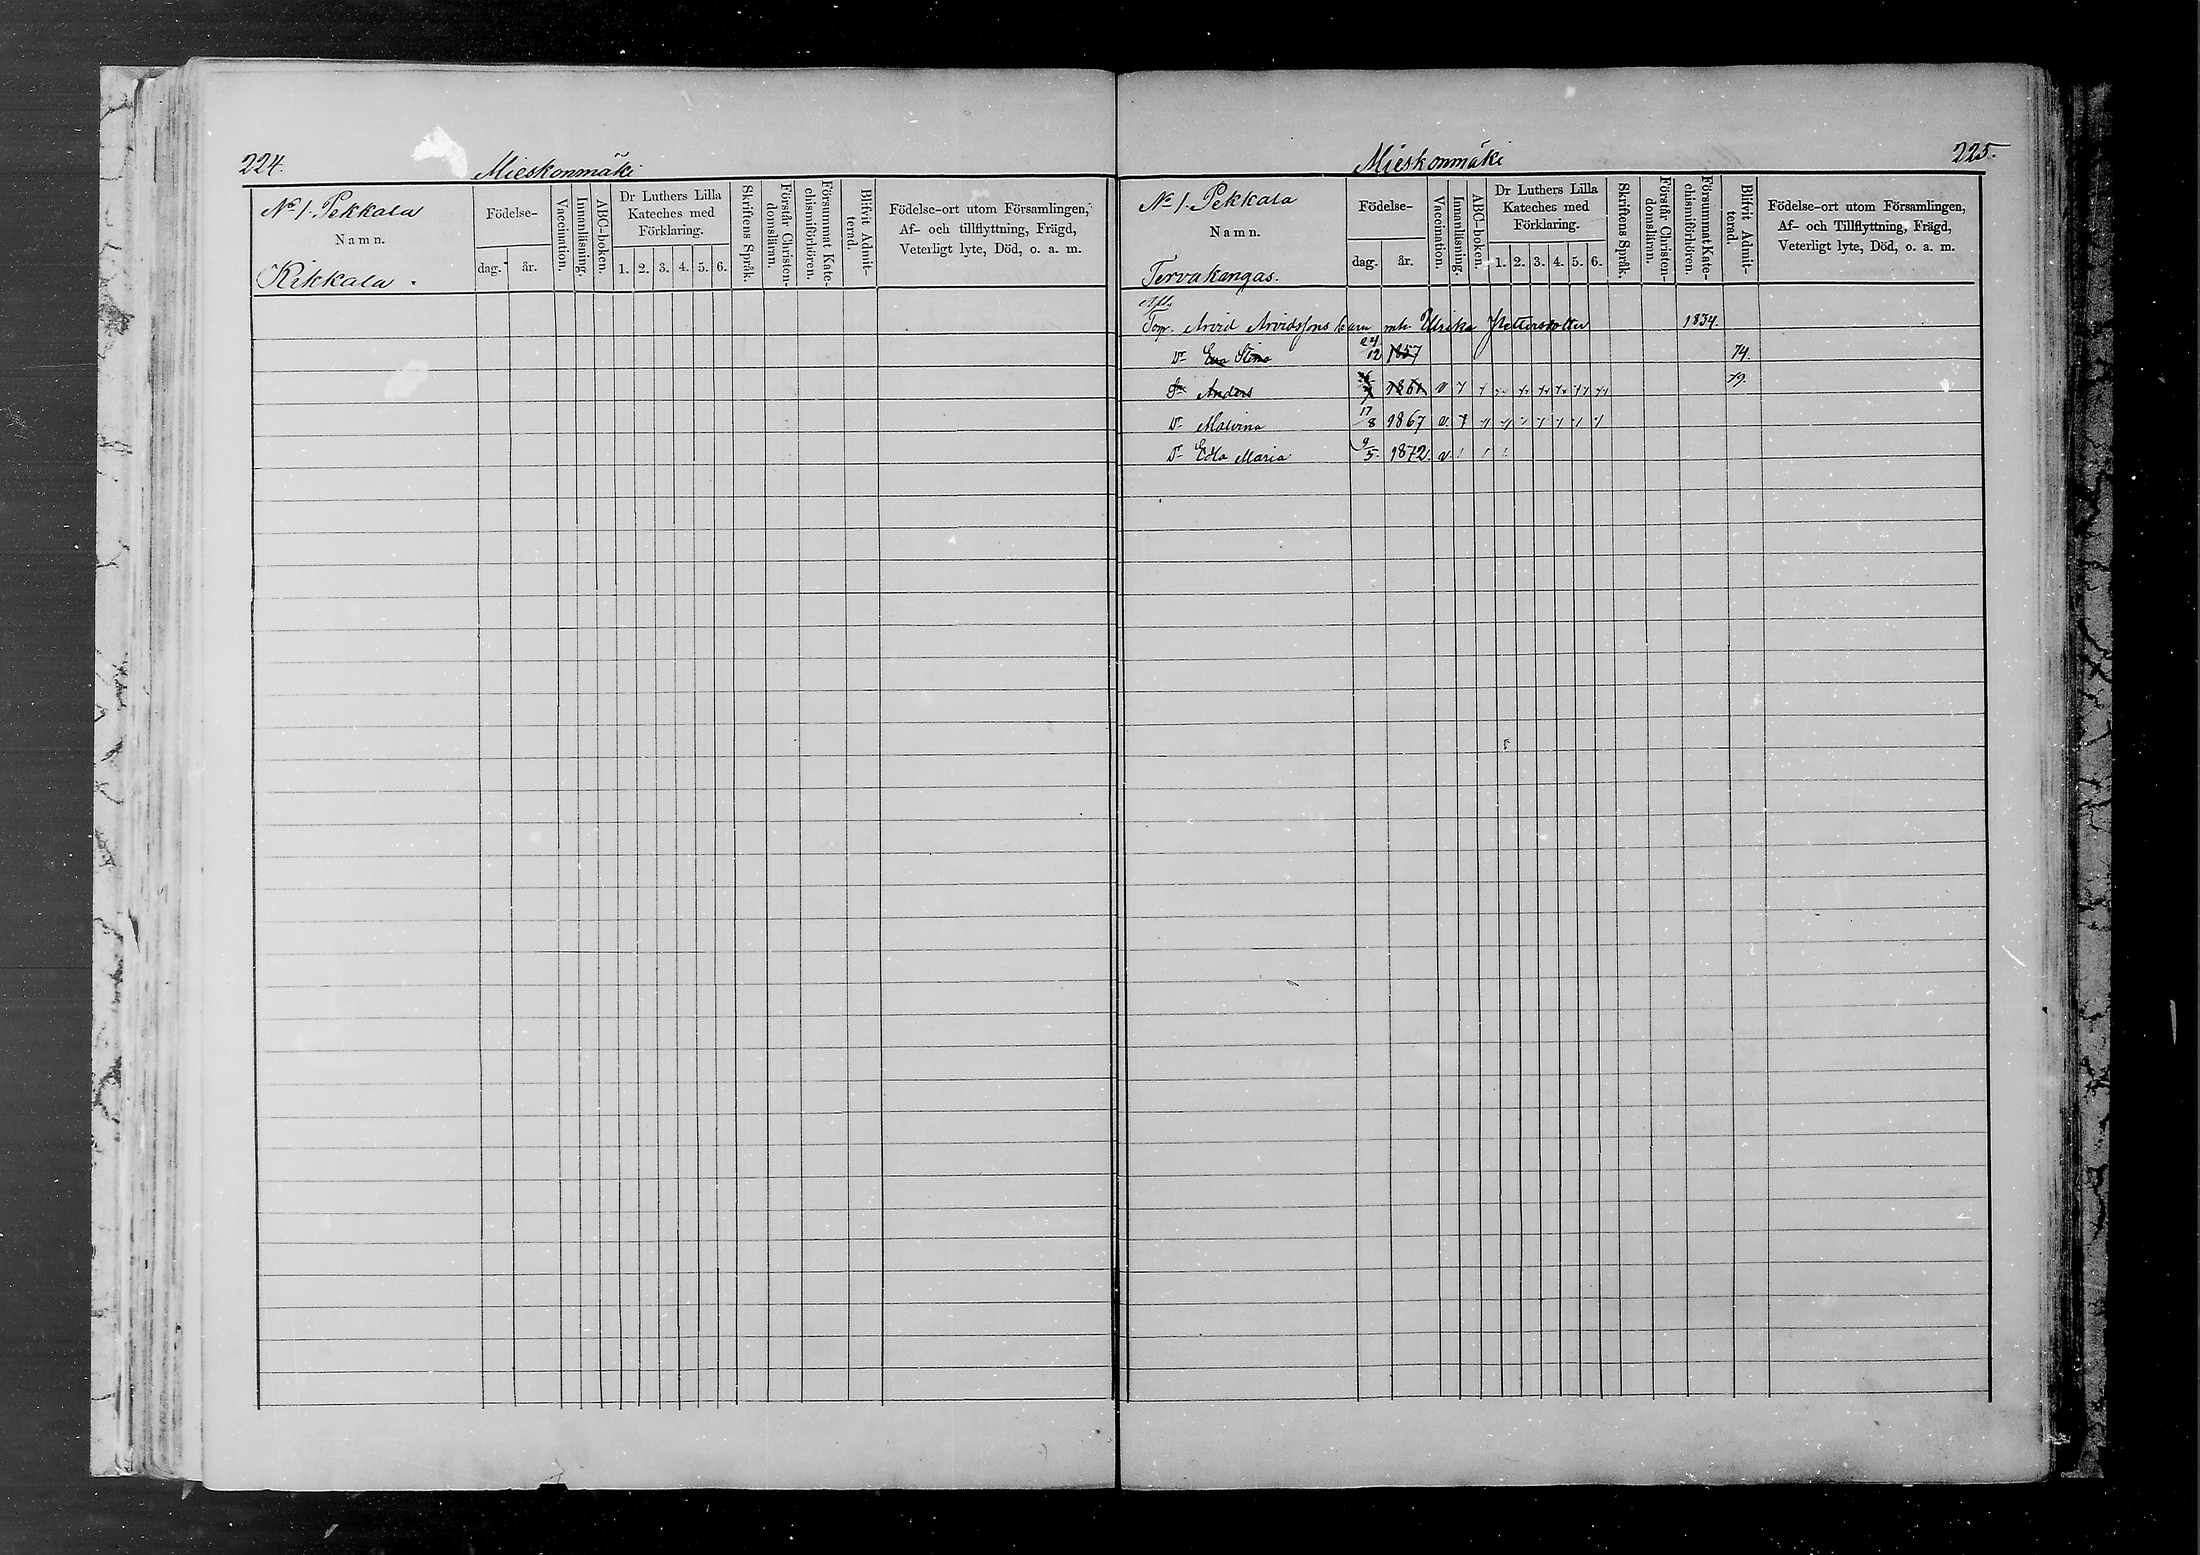 224.
Mieskonmäki
No 1. Pekkala
Namn.
Kikkala.
Födelse-
dag.
år.
Vaccination.
Innanläsning.
ABC-boken.
Dr Luthers Lilla
Kateches med
Förklaring.
1. 2. 3. 4. 5. 6.
Skriftens Språk.
Förstår Christen-
domsläran.
Försummat Kate-
chismiförhören.
Blifvit Admit-
terad.
Födelse-ort utom Församlingen,
Af- och tillflyttning, Frägd,
Veterligt lyte, Död, o. a. m.
Mieskonmäki
225.
No 1. Pekkala
Namn.
Tervakangas.
Födelse-
dag.
år.
Vaccination.
Innanläsning.
ABC-boken.
Dr Luthers Lilla
Kateches med
Förklaring.
1. 2. 3. 4. 5. 6.
Skriftens Språk.
Förstår Christen-
domslärn.
Försummat Kate-
chismiförhören.
Blifvit Admit-
torad.
Födelse-ort utom Församlingen,
Af- och Tillflyttning, Frägd,
Veterligt lyte, Död, o. a. m.
Arvid Arvidssons barn Ulrika 1834.
Dr Eva Stina 24/12 1857 74.
Anders 1861 v 79.
Dr Malvina 17/8 1867 v
Dr Edla Maria 9/5. 1872. v